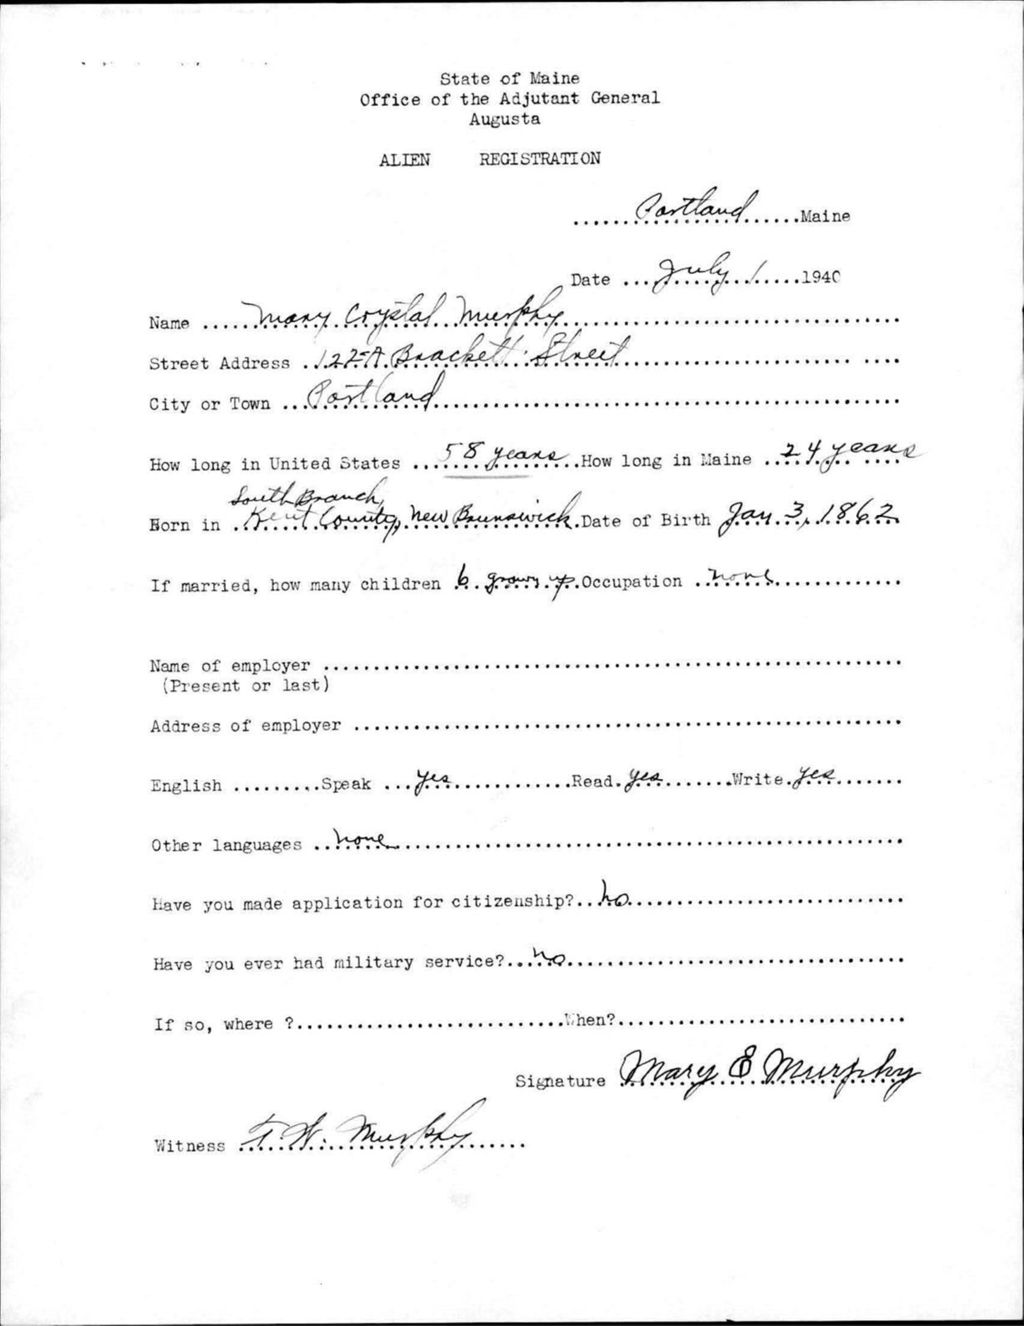 State of Maine
Office of the Adjutant General
Augusta
ALIEN REGISTRATION
Portland Maine
Date July 1 1940
Name Mary Crystal Murphy
Street Address 122-A Brackett Street
City or Town Portland
How long in United States 58 years How long in Maine 24 years
South Branch,
Born in Kent County, New Brunswick Date of Birth Jan. 3, 1862
If married, how many children 6 grown up Occupation none
Name of employer
(Present or last)
Address of employer
English Speak yes Read yes Write yes
Other languages none
Have you made application for citizenship? no
Have you ever had military service? no
If so, where ? When?
Signature Mary E Murphy
Witness F. W. Murphy